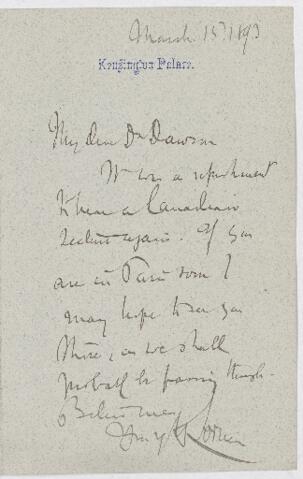 March 15th 1893
Kensington Palace.
My dear Dr Dawson
It was a refreshment
to hear a Canadian
lecture again. If you
are in Paris soon I
may hope to see you
there, as we shall
probably be passing through.
Believe me
Lorne